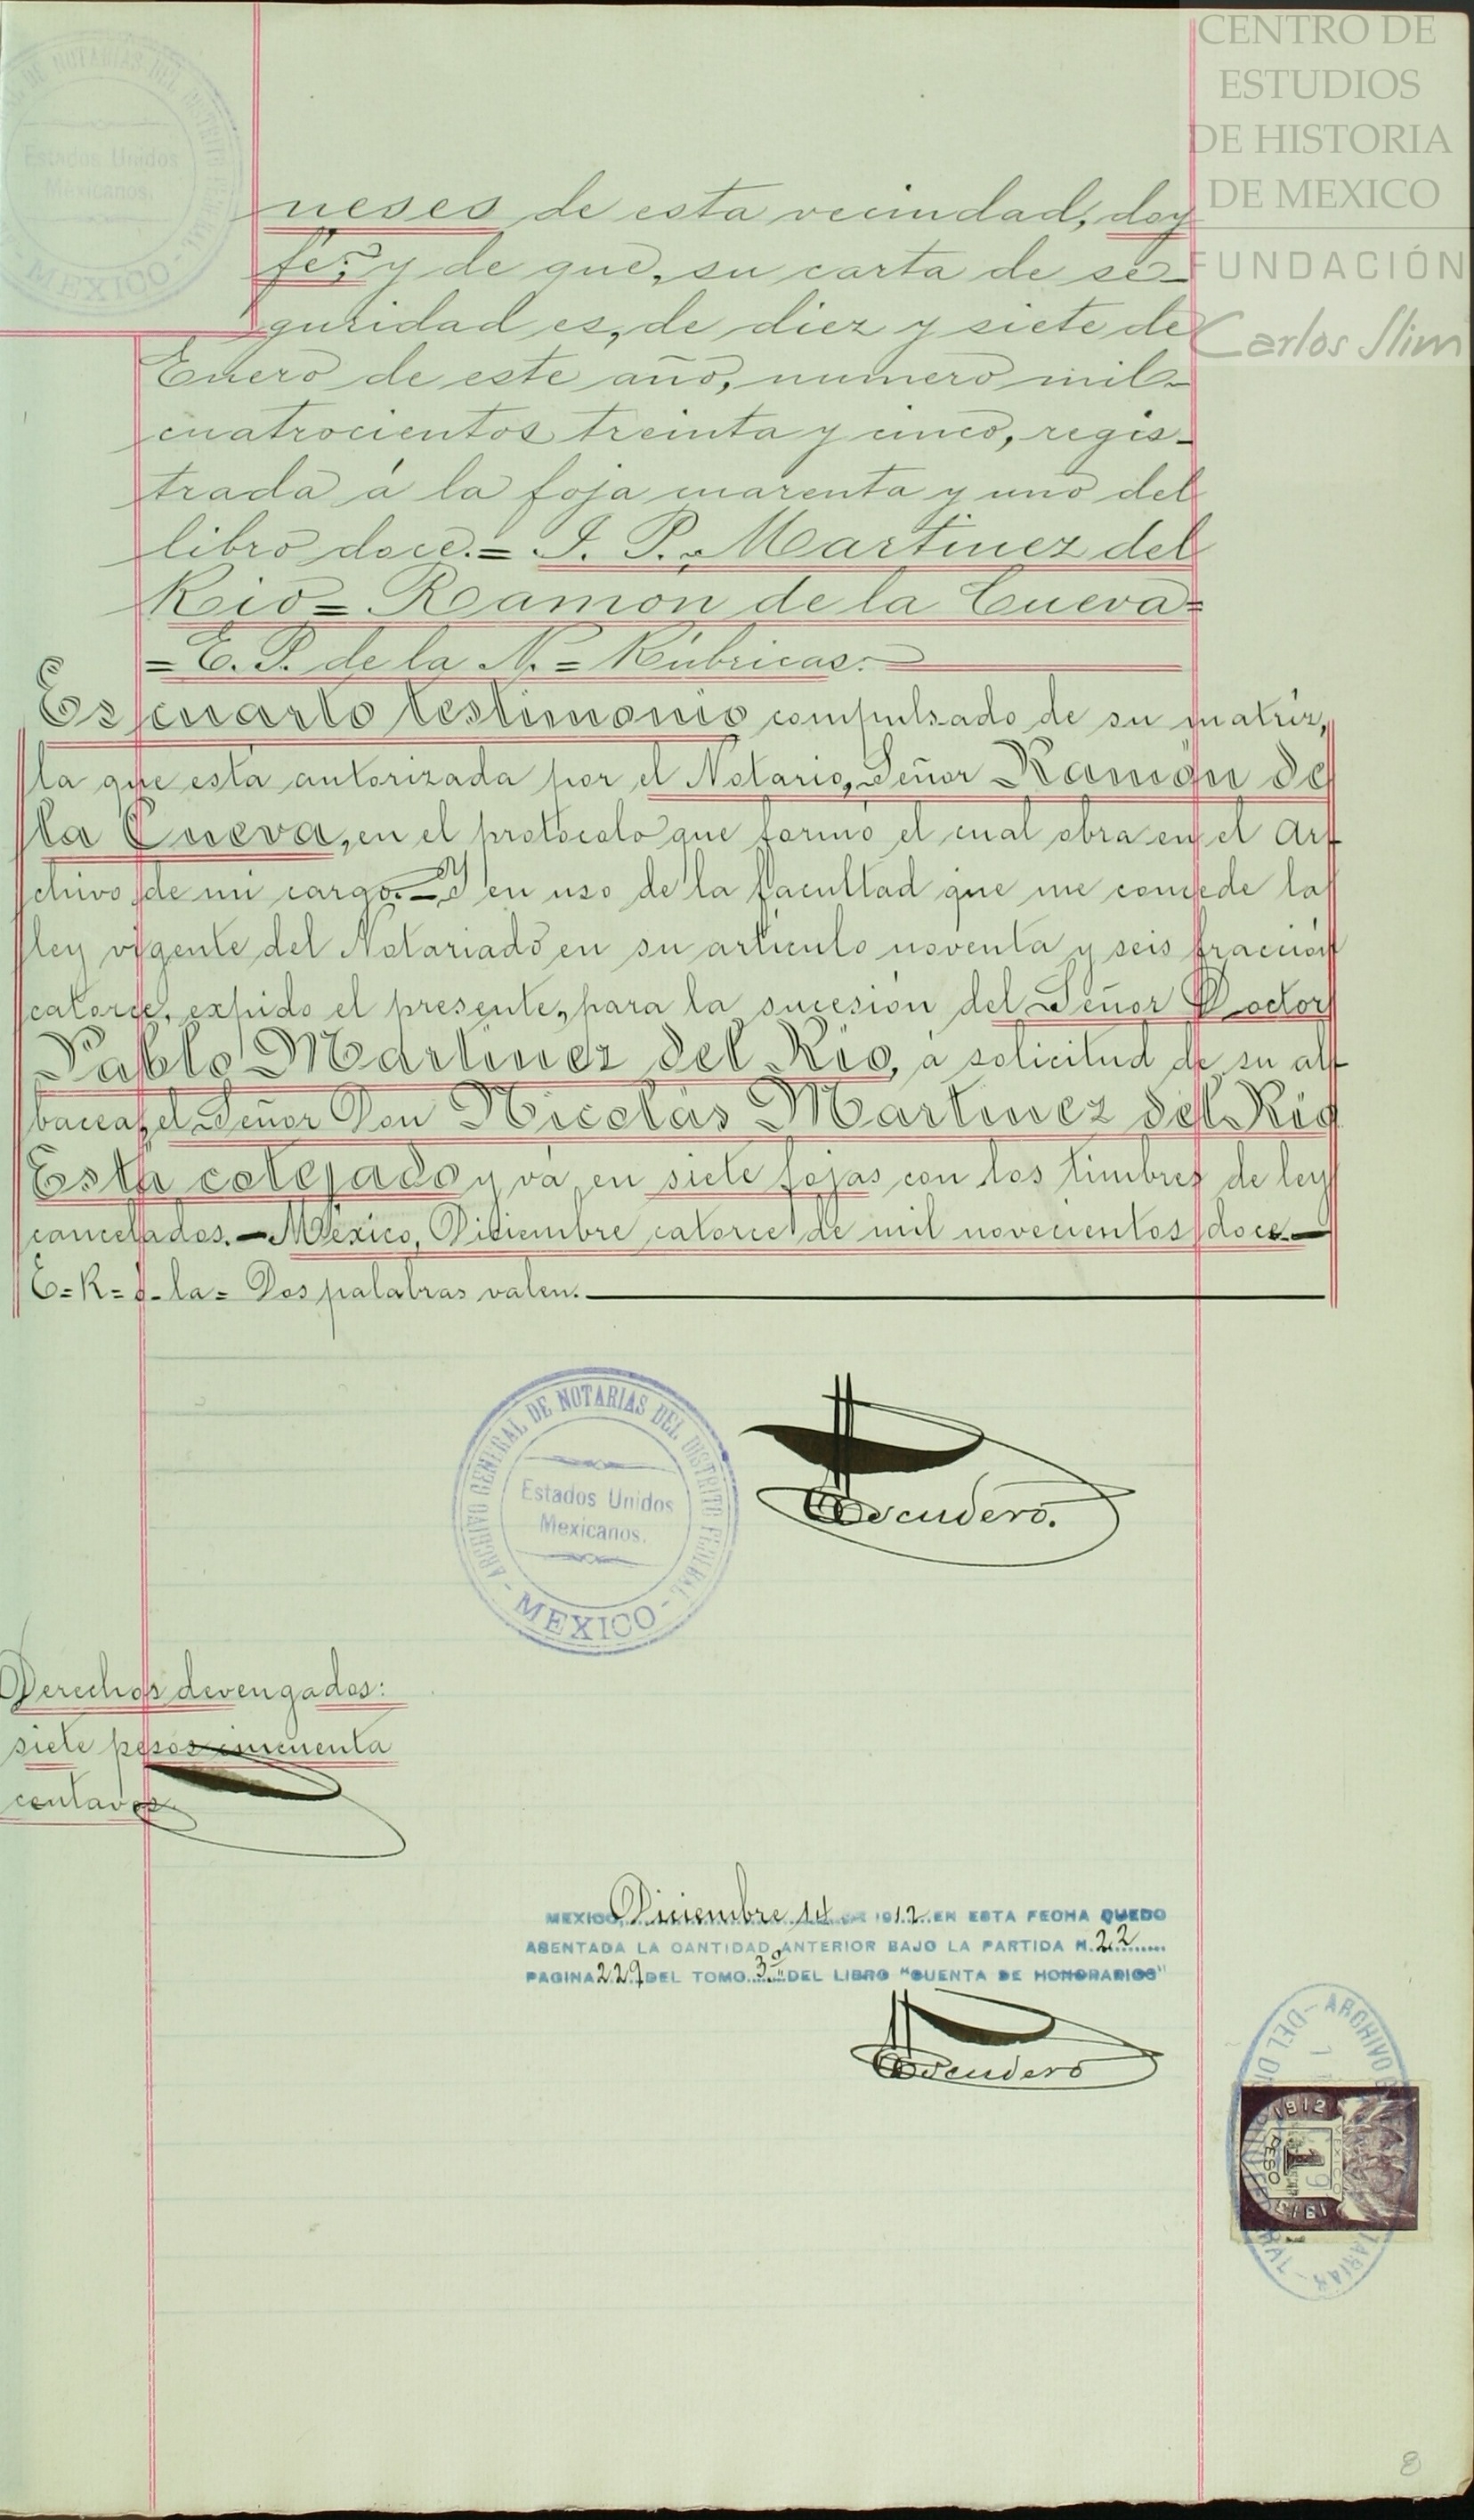 CENTRO DE
ESTUDIOS
DE HISTORIA
DE MEXICO
FUNDACIÓN
Carlos Slim
DE NOTARIAS DEL DISTRITO
Estados Unidos
Mexicanos.
- MEXICO -
neses de esta vecindad, doy
fé; y de que, su carta de se-
guridad es, de diez y siete de
Enero de este año, numero mil
cuatrocientos treinta y cinco, regis-
trada á la foja cuarenta y uno del
libro doce.= J. P. Martinez del
Rio= Ramón de la Cueva=
= E. P. de la N.= Rúbricas.
Es cuarto testimonio compulsado de su matriz,
la que está autorizada por el Notario, Señor Ramón de
la Cueva, en el protocolo que formó el cual obra en el Ar-
chivo de mi cargo.- Y en uso de la facultad que me concede la
ley vigente del Notariado en su articulo noventa y seis fracción
catorce, expido el presente, para la sucesión del Señor Doctor
Pablo Martinez del Rio, á solicitud de su al-
bacea, el Señor Don Nicolás Martinez del Rio
Está cotejado y vá en siete fojas con los timbres de ley
cancelados.- México, Diciembre catorce de mil novecientos doce.-
E=R= - la= Dos palabras valen.
ARCHIVO GENERAL DE NOTARIAS DEL DISTRITO FEDERAL
Estados Unidos
Mexicanos.
- MEXICO -
Escudero.
Derechos devengados:
siete pesos cincuenta
centavos.
MEXICO, Diciembre 14 DE 1912 EN ESTA FECHA QUEDO
ASENTADA LA CANTIDAD ANTERIOR BAJO LA PARTIDA N. 22
PAGINA 229 DEL TOMO 3º DEL LIBRO "CUENTA DE HONORARIOS"
Escudero
ARCHIVO
1912
MEXICO
1
PESO
1913
8